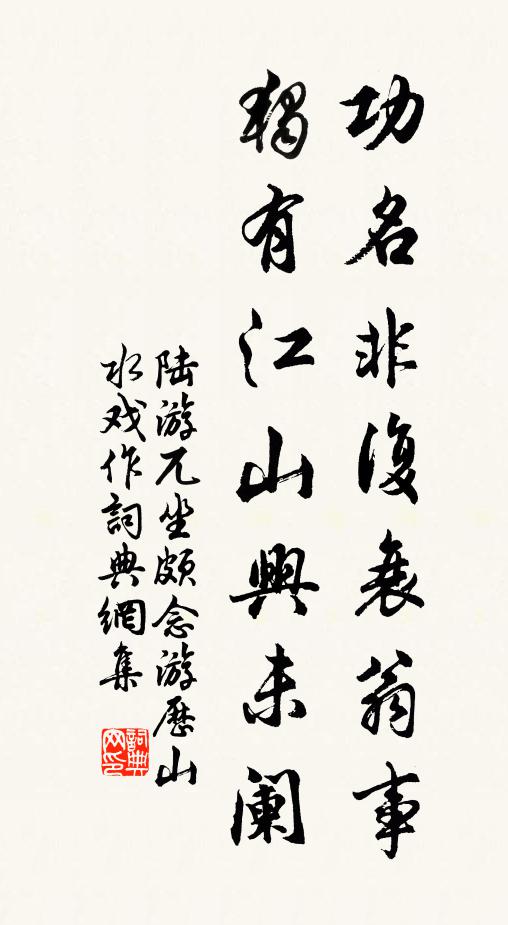 功名非復衰翁事
獨有江山興未阑
陆游兀坐頗念游歷山
水戏作詞典網集
詞典网印